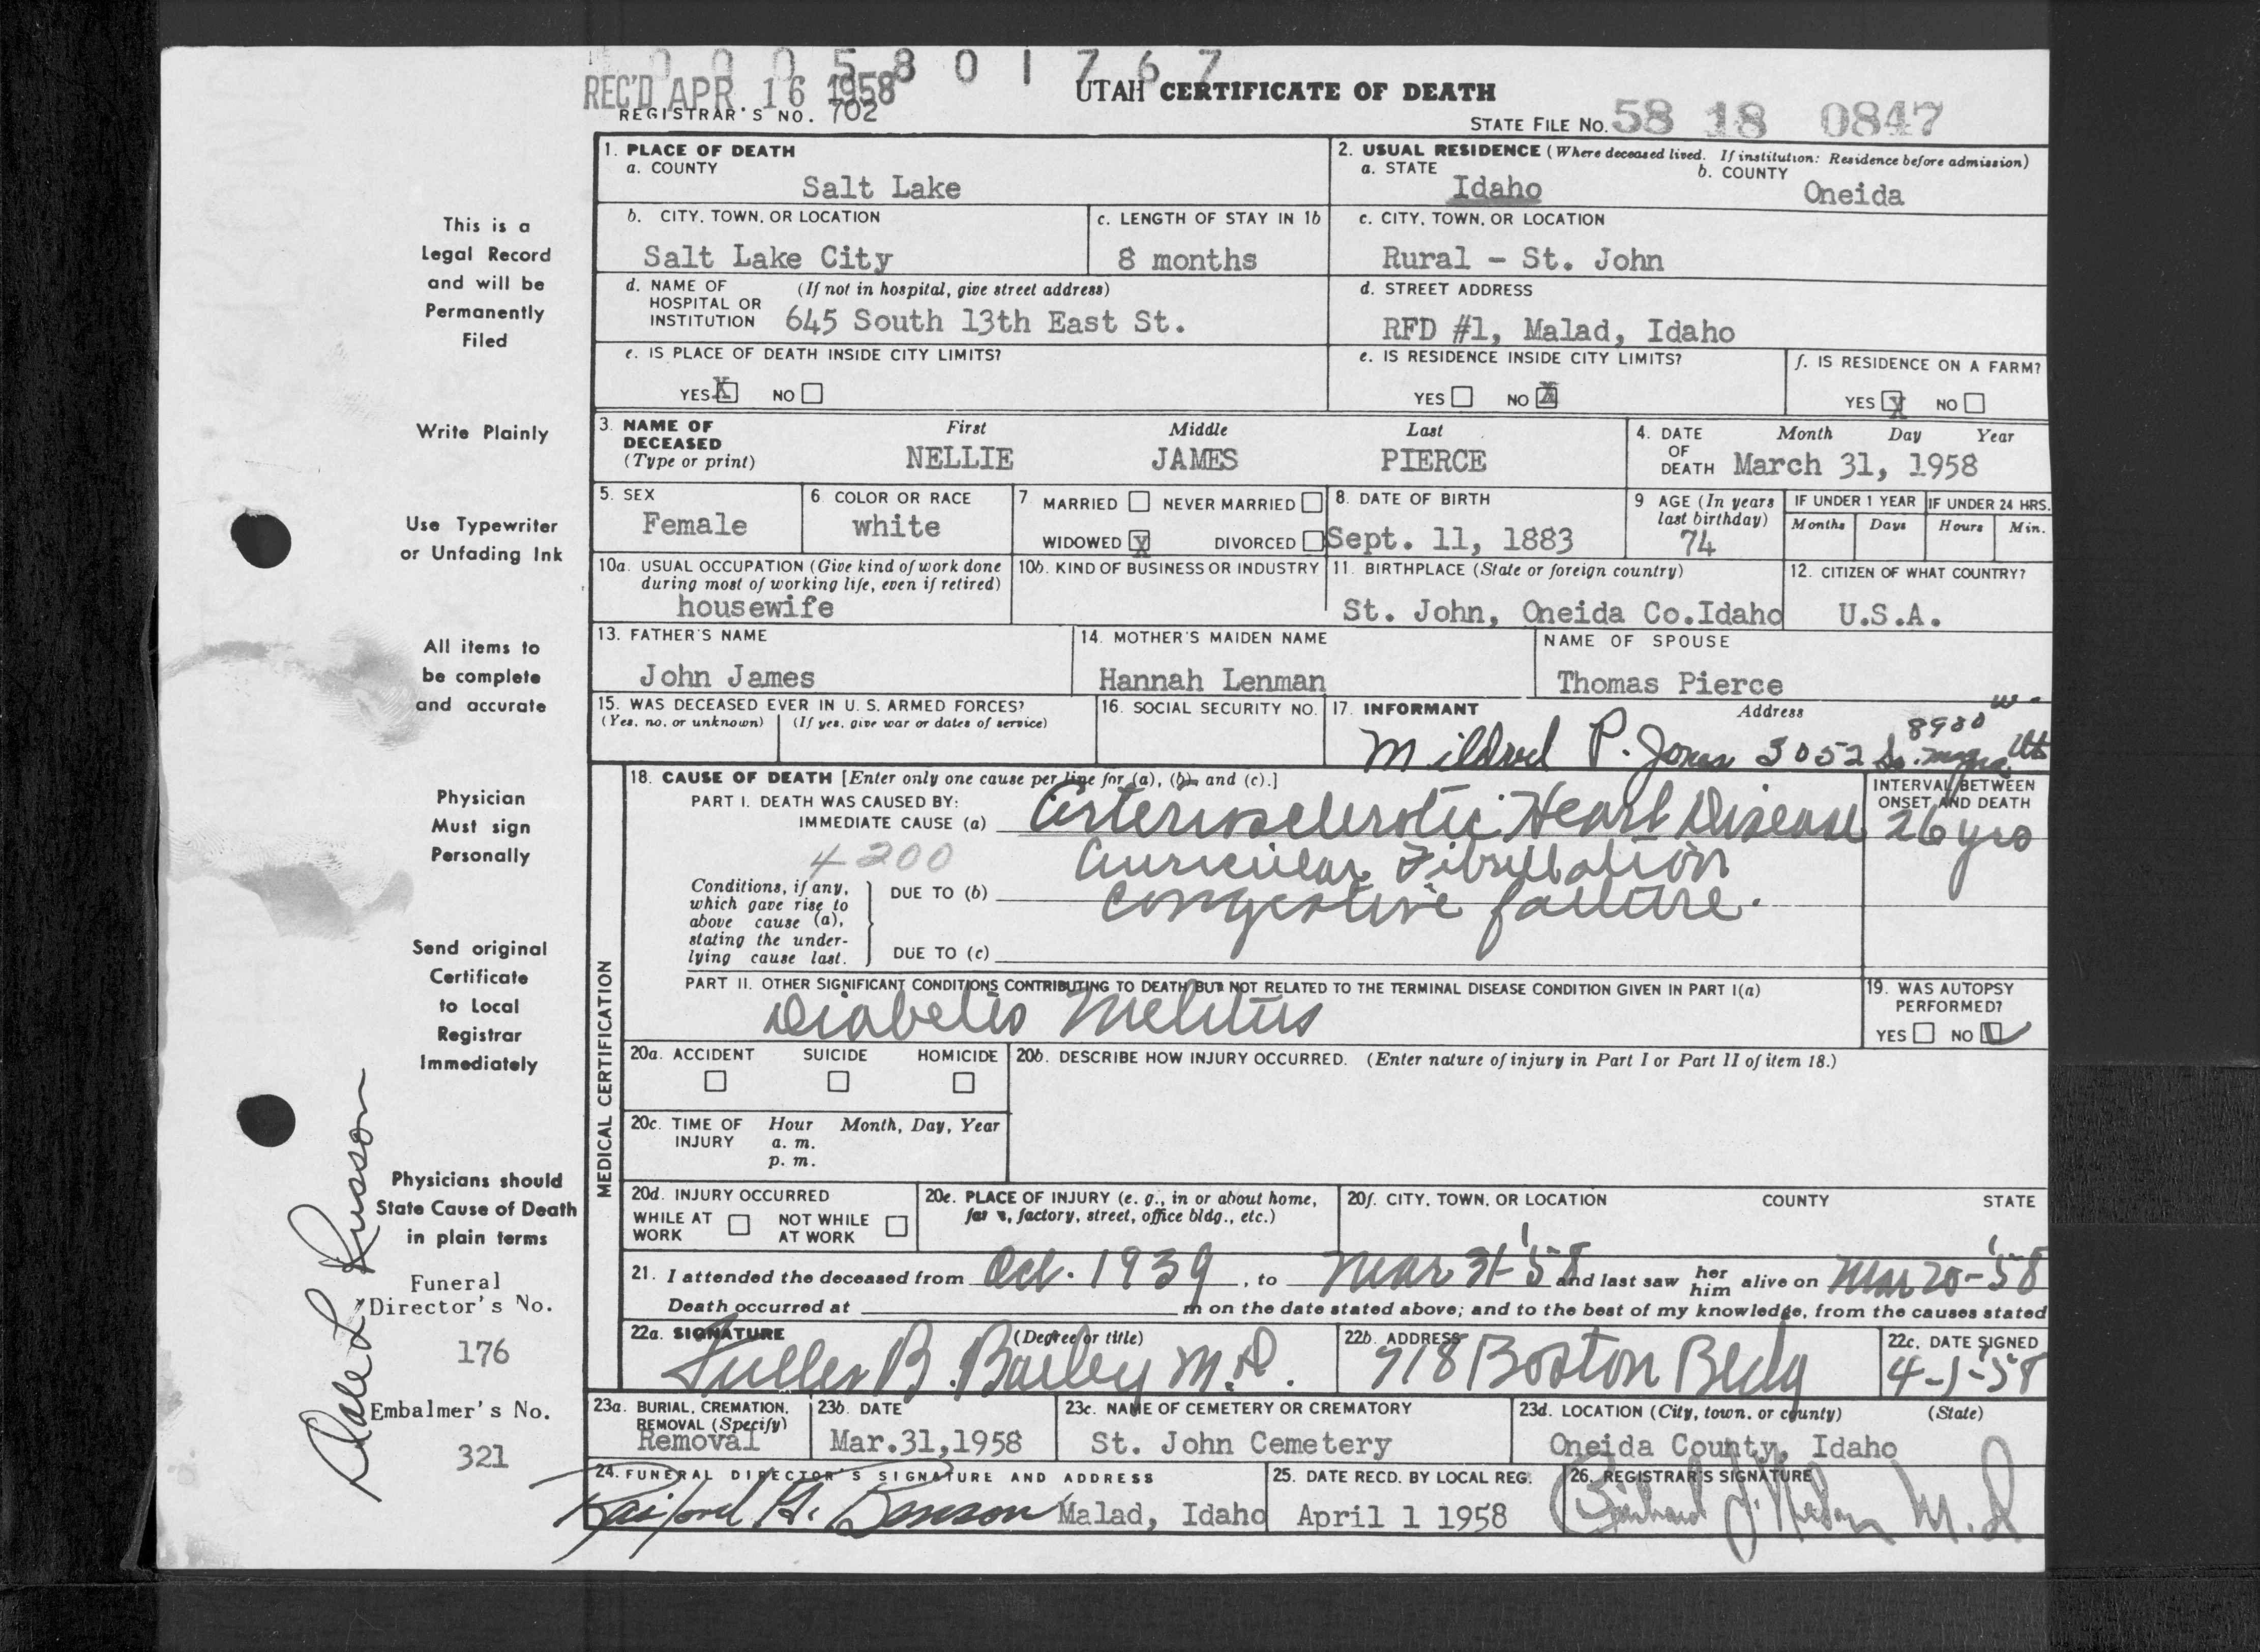 0 0 0 5 8 0 1 7 6 7
REC'D APR 16 1958
UTAH CERTIFICATE OF DEATH
REGISTRAR'S NO. 702
STATE FILE NO. 58 18 0847
This is a
Legal Record
and will be
Permanently
Filed
Write Plainly
Use Typewriter
or Unfading Ink
All items to
be complete
and accurate
Physician
Must sign
Personally
Send original
Certificate
to Local
Registrar
Immediately
Physicians should
State Cause of Death
in plain terms
Funeral
Director's No.
176
Embalmer's No.
321
Dale L Russon
1. PLACE OF DEATH
a. COUNTY
Salt Lake
2. USUAL RESIDENCE (Where deceased lived. If institution: Residence before admission)
a. STATE b. COUNTY
Idaho Oneida
b. CITY, TOWN, OR LOCATION
Salt Lake City
c. LENGTH OF STAY IN 1b
8 months
c. CITY, TOWN, OR LOCATION
Rural - St. John
d. NAME OF (If not in hospital, give street address)
HOSPITAL OR
INSTITUTION 645 South 13th East St.
d. STREET ADDRESS
RFD #1, Malad, Idaho
e. IS PLACE OF DEATH INSIDE CITY LIMITS?
YES X NO
e. IS RESIDENCE INSIDE CITY LIMITS?
YES NO X
f. IS RESIDENCE ON A FARM?
YES X NO
3. NAME OF First Middle Last
DECEASED
(Type or print) NELLIE JAMES PIERCE
4. DATE Month Day Year
OF
DEATH March 31, 1958
5. SEX
Female
6. COLOR OR RACE
white
7. MARRIED NEVER MARRIED
WIDOWED X DIVORCED
8. DATE OF BIRTH
Sept. 11, 1883
9 AGE (In years
last birthday)
74
IF UNDER 1 YEAR IF UNDER 24 HRS.
Months Days Hours Min.
10a. USUAL OCCUPATION (Give kind of work done
during most of working life, even if retired)
housewife
10b. KIND OF BUSINESS OR INDUSTRY
11. BIRTHPLACE (State or foreign country)
St. John, Oneida Co.Idaho
12. CITIZEN OF WHAT COUNTRY?
U.S.A.
13. FATHER'S NAME
John James
14. MOTHER'S MAIDEN NAME
Hannah Lenman
NAME OF SPOUSE
Thomas Pierce
15. WAS DECEASED EVER IN U. S. ARMED FORCES?
(Yes, no, or unknown) (If yes, give war or dates of service)
16. SOCIAL SECURITY NO.
17. INFORMANT Address
Mildred P. Jones 3052 So. 8980 W - Magna, Ut
MEDICAL CERTIFICATION
18. CAUSE OF DEATH [Enter only one cause per line for (a), (b), and (c).]
PART I. DEATH WAS CAUSED BY:
IMMEDIATE CAUSE (a) Arteriosclerotic Heart Disease
INTERVAL BETWEEN
ONSET AND DEATH
26 yrs
4200
Auricular Fibrillation
Conditions, if any,
which gave rise to
above cause (a),
stating the under-
lying cause last.
DUE TO (b) Congestive failure.
DUE TO (c)
PART II. OTHER SIGNIFICANT CONDITIONS CONTRIBUTING TO DEATH BUT NOT RELATED TO THE TERMINAL DISEASE CONDITION GIVEN IN PART I(a)
Diabetis Melitus
19. WAS AUTOPSY
PERFORMED?
YES NO
20a. ACCIDENT SUICIDE HOMICIDE
20b. DESCRIBE HOW INJURY OCCURRED. (Enter nature of injury in Part I or Part II of item 18.)
20c. TIME OF Hour Month, Day, Year
INJURY a. m.
p. m.
20d. INJURY OCCURRED
WHILE AT NOT WHILE
WORK AT WORK
20e. PLACE OF INJURY (e. g., in or about home,
farm, factory, street, office bldg., etc.)
20f. CITY, TOWN, OR LOCATION COUNTY STATE
21. I attended the deceased from Oct. 1939, to Mar 31-'58 and last saw her him alive on Mar 20-'58
Death occurred at m on the date stated above; and to the best of my knowledge, from the causes stated
22a. SIGNATURE (Degree or title)
Fuller B. Bailey M.D.
22b. ADDRESS
718 Boston Bldg
22c. DATE SIGNED
4-1-'58
23a. BURIAL, CREMATION,
REMOVAL (Specify)
Removal
23b. DATE
Mar.31,1958
23c. NAME OF CEMETERY OR CREMATORY
St. John Cemetery
23d. LOCATION (City, town, or county) (State)
Oneida County, Idaho
24. FUNERAL DIRECTOR'S SIGNATURE AND ADDRESS
H. Benson Malad, Idaho
25. DATE RECD. BY LOCAL REG.
April 1 1958
26. REGISTRAR'S SIGNATURE
M.D